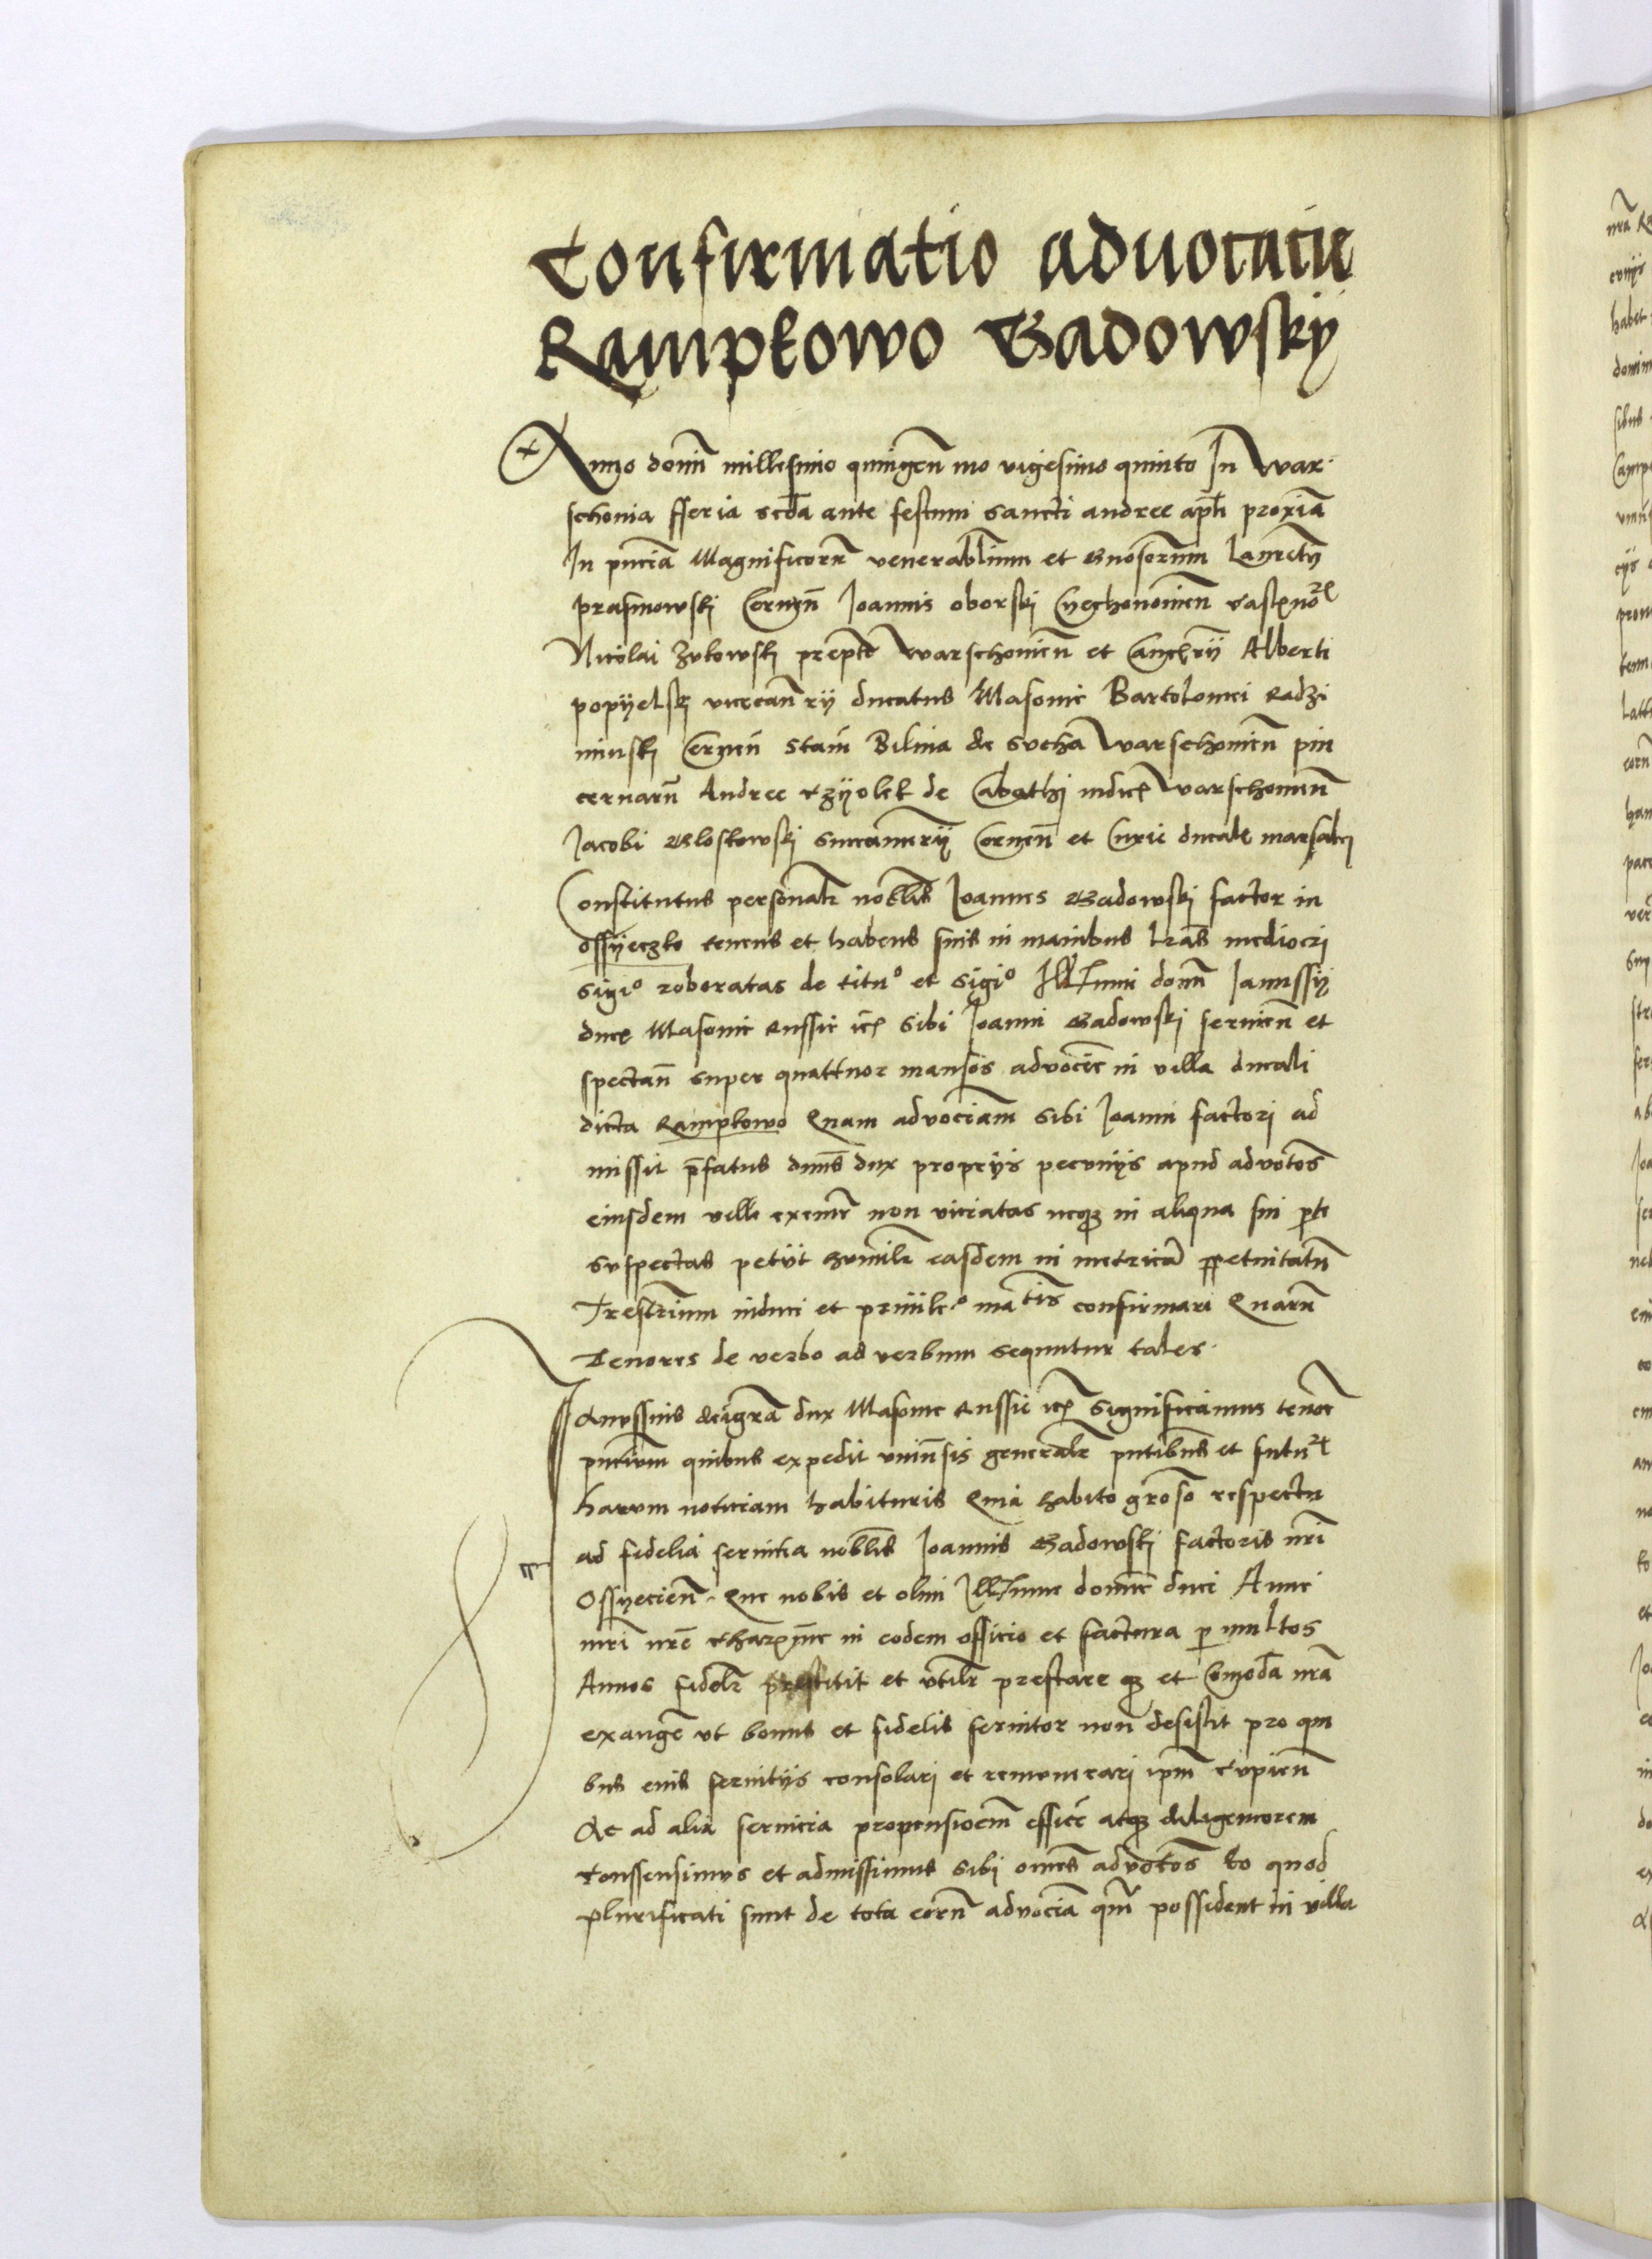 Confirmatio advocacie
Rampkowo Gadowsky
Anno domi millesimo quingen mo vigesimo quinto In War
schouia fferia scda ante festum sancti andree apli proxia
In pncia Magnificoru venerabilium et Gnosorum Laurcty
prasmowski Cernen Joannis oborski Cyechonouien
Nicolai zukowski prepto Warschouien et Cancrij Alberti
popyelski vicecanrij ducatus Masouie Bartolomei Radzi
minski Cernen Stai Bilina de sucha Warschouien pin
cernaru Andree de iudic Warschouien
Jacobi Gloskowski succamerij Cernen et Curie ducale marsalci
Constitutus personalr nobilis Joannes Gadowski factor in
ossyeczko tenens et habens suis in manibus lras mediocri
sigio roboratas de tituo et sigio Illmi domi Janussij
duce Masouie Russie etc sibi Joanni Gadowski seruien et
spectan super quattuor mansos advocie in villa ducali
dicta Rampkowo Quam advociam sibi Joanni factori ad
missit pfatus dnus dux proprijs pecunijs apud advotos
eiusdem ville exemr non viciatas neq in aliqua sui pte
suspectas petijt humilr easdem in metrica ppetuitatu
Trestrium induci et priuileo confirmari Quaru
Tenores de verbo ad verbum sequntur tales
Janussius deigra dux Masouie Russie etc Significamus tenore
pncium quibus expedit vniuersis generalr pntibus et futur
harum noticiam habituris Quia habito groso respectu
ad fidelia seruicia nobilis Joannis Gadowski factoris nri
Ossyecien Que nobis et olim Illme domie duci Anne
mri nre Charme in eodem officio et factura p multos
Annos fidelr prestitit et vtilr prestare q et comoda nra
exauge vt bonus et fidelis seruitor non desistit pro qui
bus eius seruitijs consolari et remunerari ipm cupien
Ac ad alia seruicia propensiorem effice atq diligenciorem
Conssensimus et admissimus sibi omes advotos Eo quod
plurificati sunt de tota eoru advocia qm possident in villa